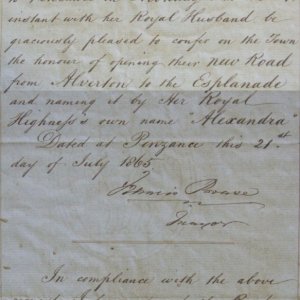 instant with her Royal Husband be
graciously pleased to confer on the Town
the honour of opening their new Road
from Alverton to the Esplanade
and naming it by Her Royal
Highness's own name "Alexandra"
Dated at Penzance this 21st
day of July 1865
Francis Boase
Mayor
In compliance with the above